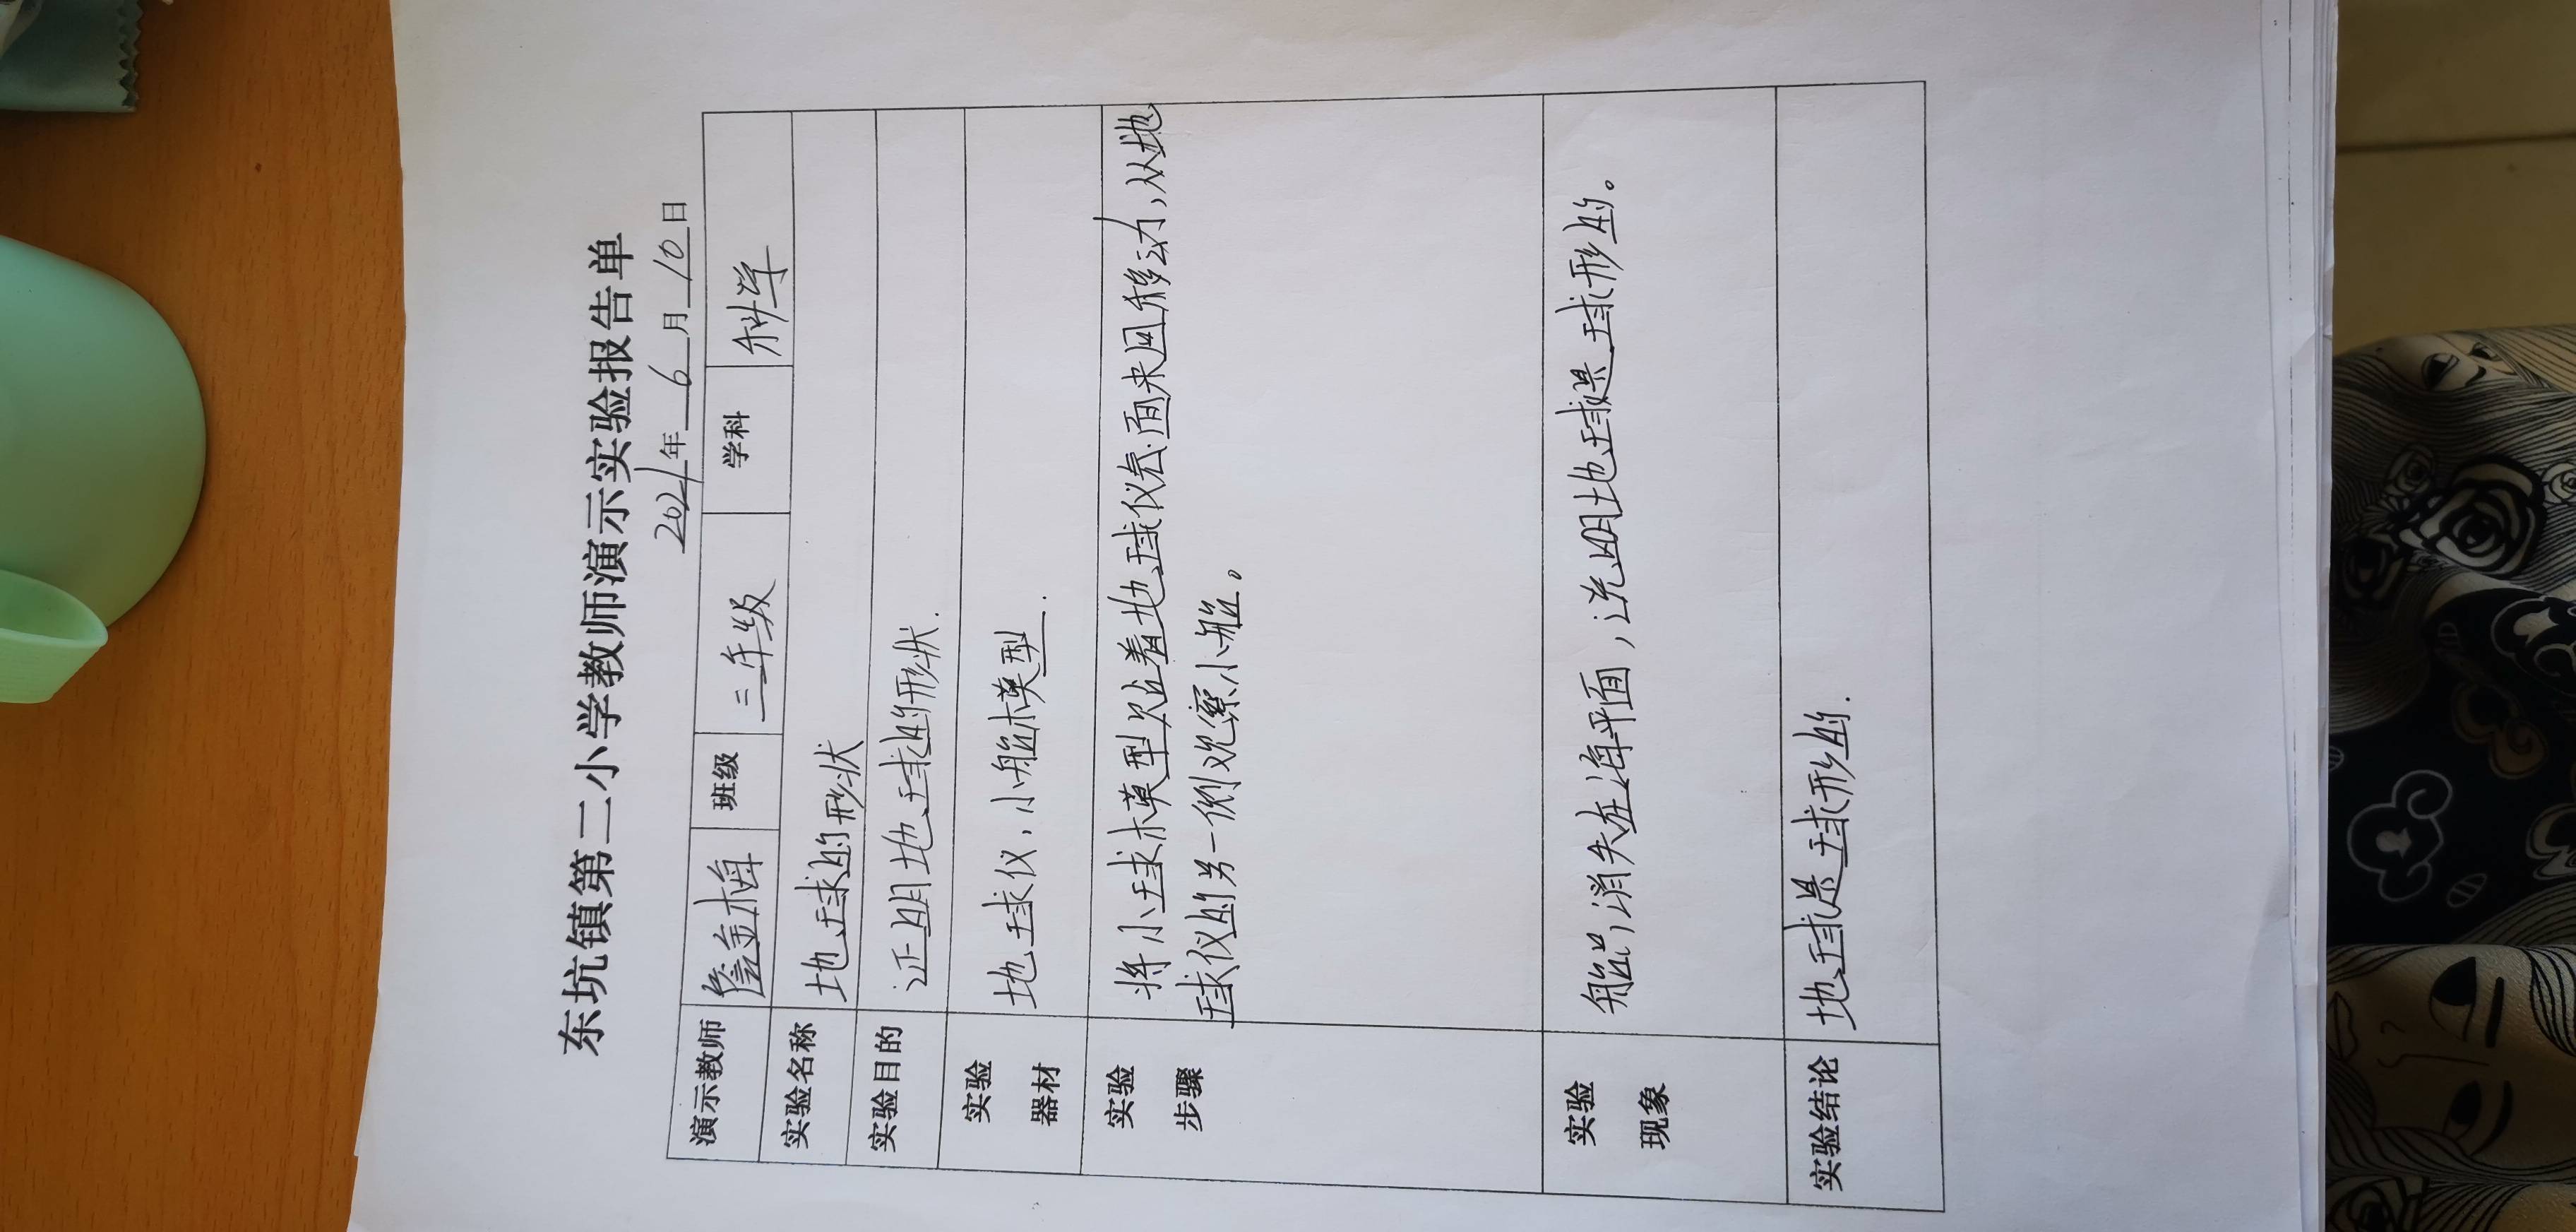 东坑镇第二小学教师演示实验报告单
2021年6月10日
演示教师 詹金梅 班级 三年级 学科 科学
实验名称 地球的形状
实验目的 证明地球的形状.
实验器材 地球仪,小船模型.
实验步骤 将小球模型贴着地球仪表面来回移动,从地
球仪的另一侧观察小船。
实验现象 船只消失在海平面,说明地球是球形的。
实验结论 地球是球形的.